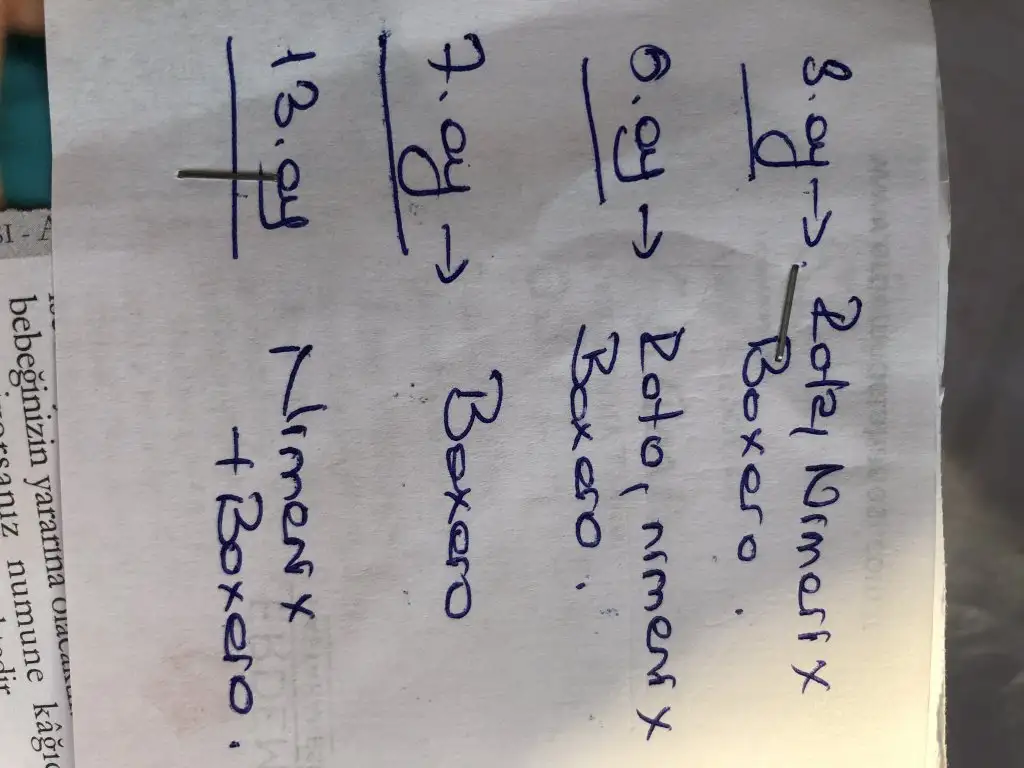 3. ay → Rota, Nimenrx
Boxero.
6. ay → Rota, nimenrx
Boxero.
7. ay → Boxero
13. ay Nimenrx
+ Boxero.
bebeğinizin yararına
numune